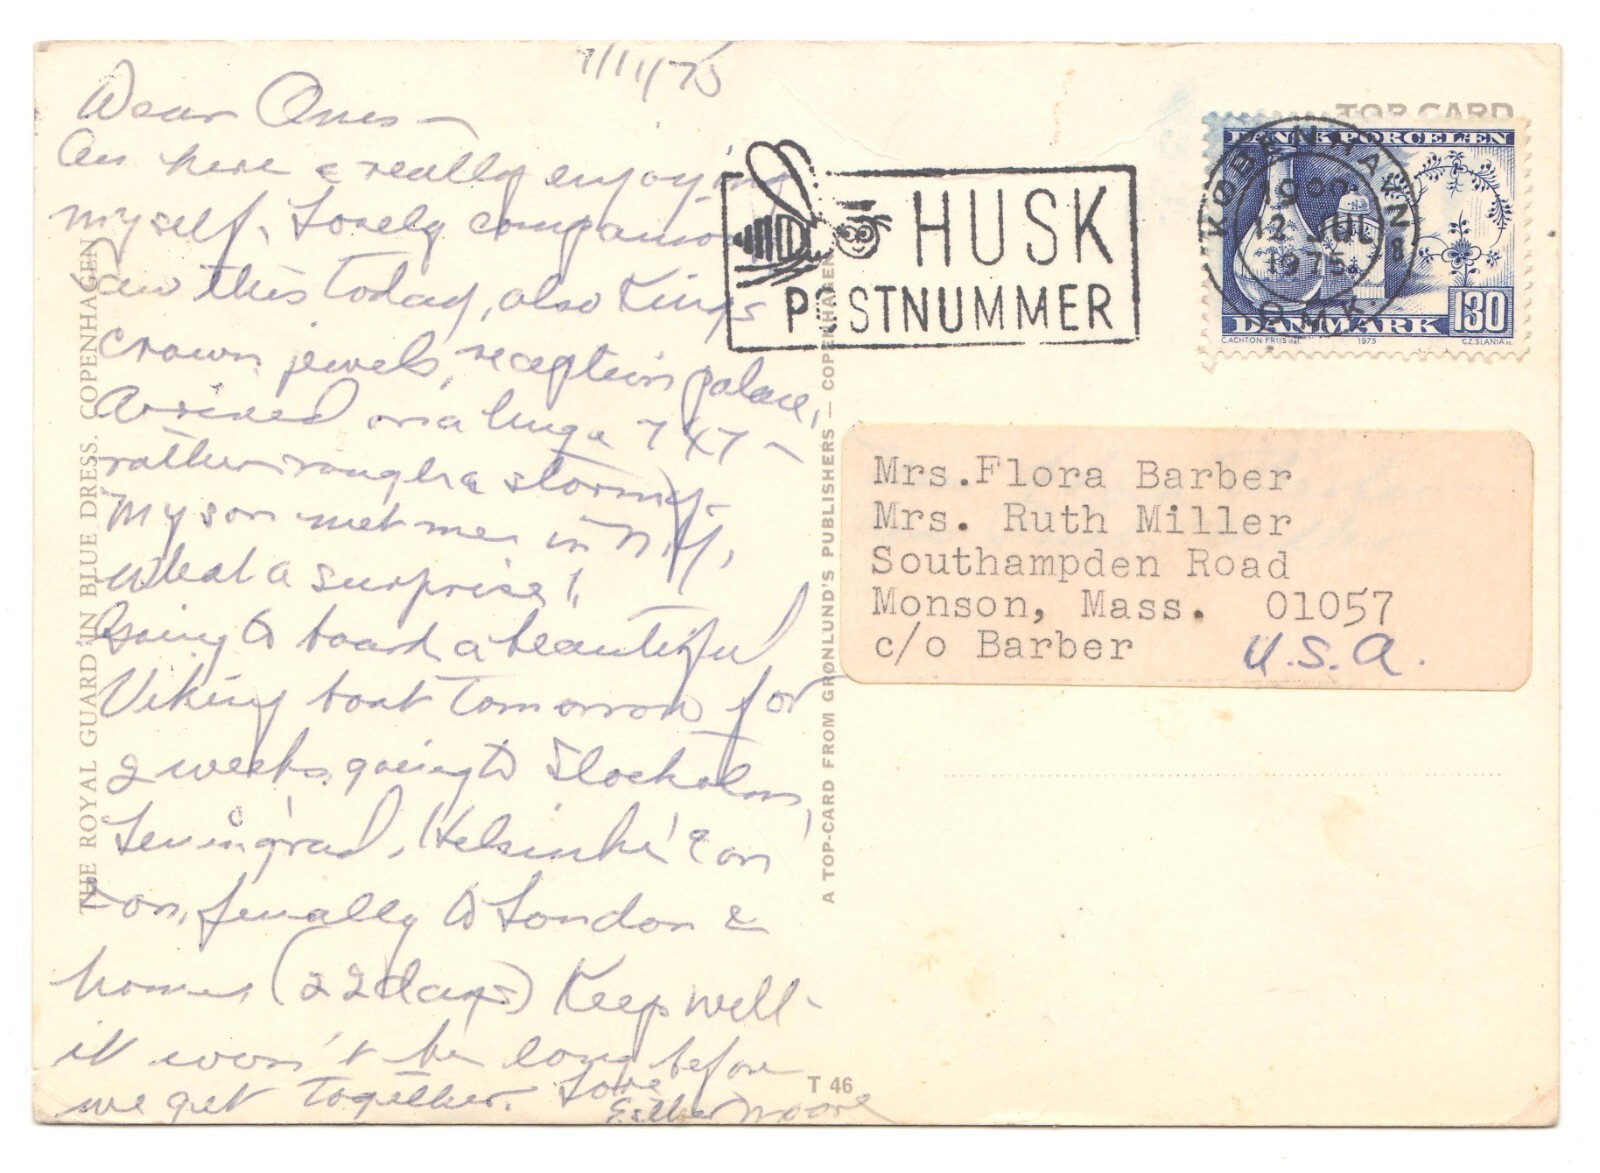 7/11/75
Dear Ones –
Am here & really enjoying
myself. Lovely companion
saw this today, also Kings
Crown jewels, reception palace,
Arrived on a huge 747 –
rather rough & stormy.
My son met me in N.Y.,
What a surprise!
Going to board a beautiful
Viking boat tomorrow for
2 weeks, going to Stockholm,
Leningrad, Helsinki & on
& on, finally to London &
home, (22 days) Keep well –
it won't be long before
we get together. Love
Esther Moore
THE ROYAL GUARD IN BLUE DRESS. COPENHAGEN
A TOP-CARD FROM GRØNLUND'S PUBLISHERS – COPENHAGEN
T 46
TOP CARD
HUSK
POSTNUMMER
DANSK PORCELÆN
KØBENHAVN
12 JUL
1975
OMK.
8
DANMARK 130
C.ACHTON FRIIS del. 1975 CZ.SLANIA sc.
Mrs.Flora Barber
Mrs. Ruth Miller
Southampden Road
Monson, Mass. 01057
c/o Barber U.S.A.